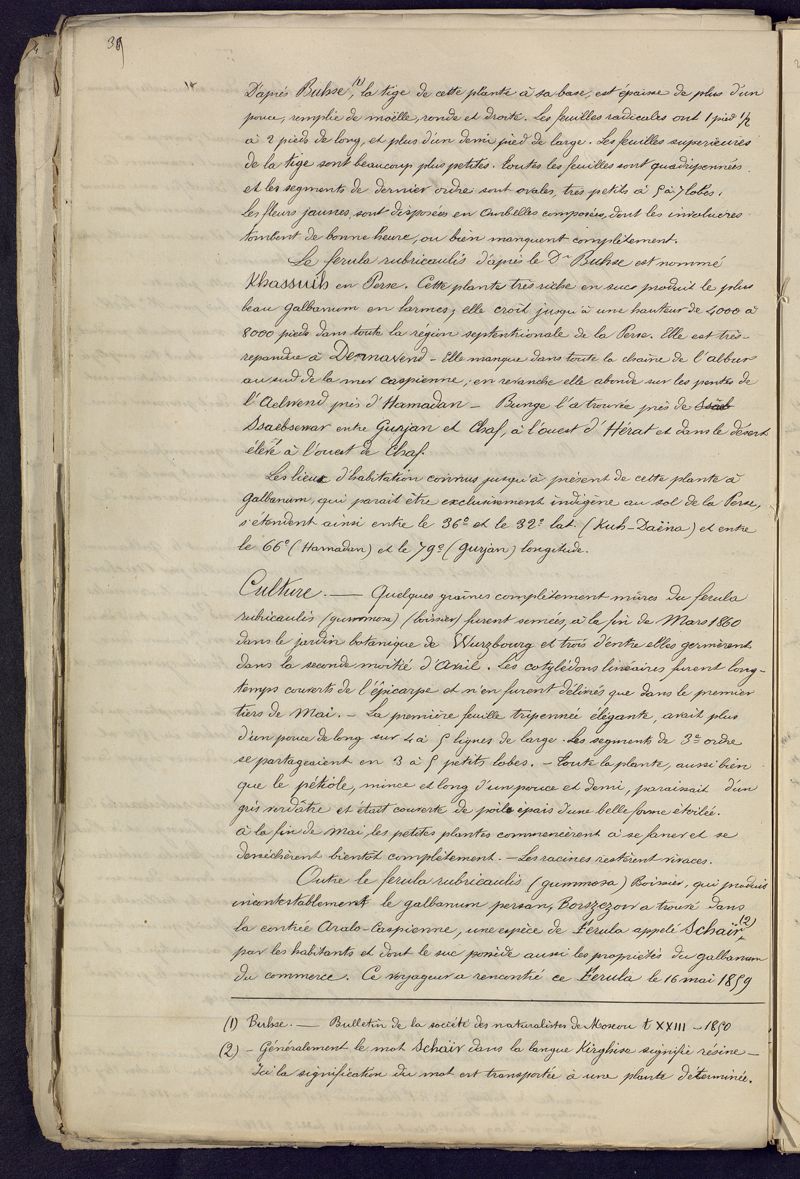 38
D'après Buhse,(1) la tige de cette plante à sa base, est épaisse de plus d'un
pouce, remplie de moëlle, ronde et droite. Les feuilles radicales ont 1 pied 1/2
à 2 pieds de long, et plus d'un demi pied de large. Les feuilles supérieures
de la tige sont beaucoup plus petites. toutes les feuilles sont quadripennées
et les segments de dernier ordre sont ovales, très petits à 5 à 7 lobes.
Les fleurs jaunes, sont disposées en ombelles composées, dont les involucres
tombent de bonne heure, ou bien manquent complètement.
Le ferula rubricaulis d'après le Dr Buhse est nommé
Khassuih en Perse. Cette plante très riche en sucs produit le plus
beau galbanum en larmes; elle croît jusqu'à une hauteur de 4000 à
8000 pieds dans toute la région septentrionale de la Perse. Elle est très-
repandue à Demavend - Elle manque dans toute la chaîne de l'alburs
au sud de la mer caspienne; en revanche elle abonde sur les pentes de
l'Aelwend près d'Hamadan - Bunge l'a trouvée près de Ssäb
Ssaebsewar entre Gurjan et Chaf, à l'ouest d'Hérat et dans le désert
élevé à l'ouest de Chaf.
Les lieux d'habitation connus jusqu'à présent de cette plante à
galbanum, qui parait être exclusivement indigène au sol de la Perse,
s'étendent ainsi entre le 36e et le 32e lat. (Kuh-Daëna) et entre
le 66e (Hamadan) et le 79e (Gurjan) longitude.
Culture. — Quelques graines complètement mûres du ferula
rubricaulis (gummosa) (boissier) furent semées, à la fin de Mars 1860
dans le jardin botanique de Wurzbourg et trois d'entre elles germèrent
dans la seconde moitié d'Avril. Les cotylédons linéaires furent long-
temps couverts de l'épicarpe et n'en furent délivrés que dans le premier
tiers de Mai. - La première feuille tripennée élégante, avait plus
d'un pouce de long sur 4 à 5 lignes de large. Les segments de 3e ordre
se partageaient en 3 à 5 petits lobes. - toute la plante, aussi bien
que le pétiole, mince et long d'un pouce et demi, paraissait d'un
gris verdâtre et était couverte de poils épais d'une belle forme étoilée.
à la fin de Mai, les petites plantes commencèrent à se faner et se
desséchèrent bientôt complètement. - Les racines restèrent vivaces.
Outre le ferula rubricaulis (gummosa) Boissier, qui produit
incontestablement le galbanum persan, Borszezow a trouvé dans
la contrée Aralo-Caspienne, une espèce de Ferula appelé Schaïr(2)
par les habitants et dont le suc possède aussi les propriétés du galbanum
du commerce. Ce voyageur a rencontré ce Ferula le 16 mai 1859
(1) Buhse. — Bulletin de la société des naturalistes de Moscou t XXIII - 1850
(2) - Généralement le mot Schaïr dans la langue Kirghise signifie résine -
Ici la signification du mot est transportée à une plante déterminée.